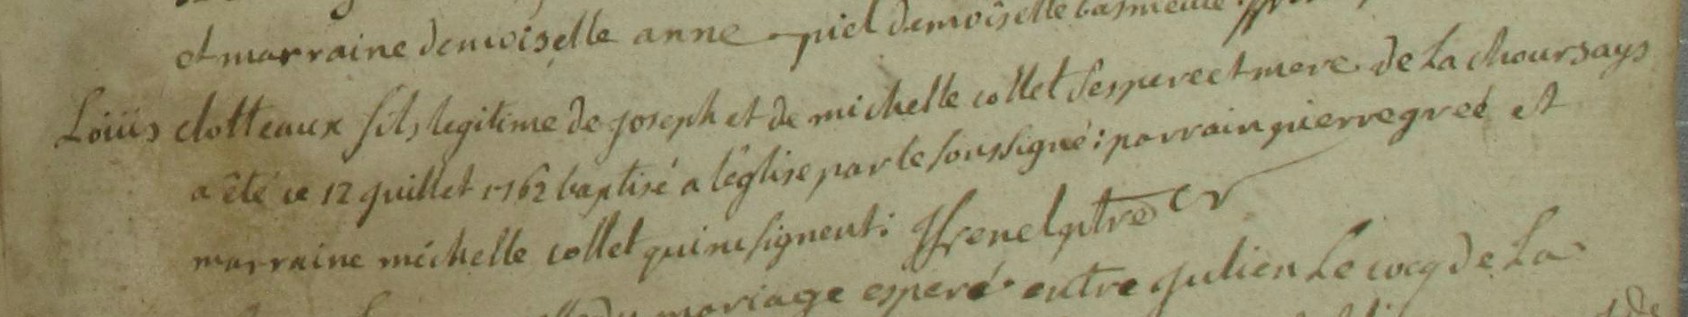 et marraine demoiselle anne piel demoiselle
Loüis clotteaux fils legitime de joseph et de michelle collet ses pere et mere de La choursays
a été ce 12 juillet 1762 baptisé a léglise par le soussigné: parrain pierre greé et
marraine michelle collet qui ne signent:
mariage esperé entre julien Le cocq de La